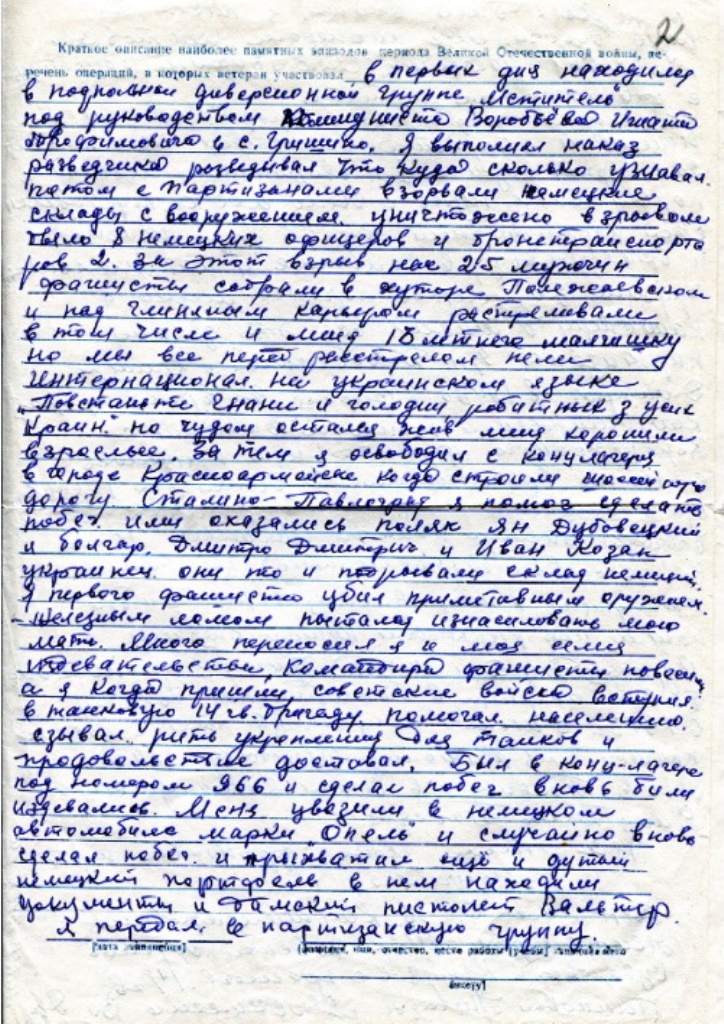 2
Краткое описание наиболее памятных эпизодов периода Великой Отечественной войны, пе-
речень операций, в которых ветеран участвовал в первых дня находился
в подпольной диверсионной группе Мститель
под руководством Коммуниста Воробьёва Игната
в с. Гришино. Я выполнял наказ
разведчика разведывал что куда сколько узнавал.
патом с Партизанами взорвали немецкие
склады с вооружением. уничтожено взрывом
было 8 немецких офицеров и бронетранспорте
ров 2. За этот взрыв нас 25 мужчин
фашисты собрали в хуторе
и над глиняным карьером растреливали
в том числе и меня 18 летнего мальчишку
но мы все перед расстрелом пели
Интернационал. на украинском языке
и голодни робитныки з усих
Краин" но чудом остался жив меня
взрослые. За тем я освободил с концлагеря
в городе Красноармейске когда строили
дорогу Сталино-Павлоград я помог сделать
побег. ими оказались поляк Ян Дубовецкий
и болгар. Дмитро Дмитрич и Иван Козак
украинец. они то и подрывали склад немецкий.
я первого фашиста убил приметавным оружием.
- железным ломом пытался изнасиловать мою
мать. Много переносил я и моя семя
издевательства. Командира фашисты
а я когда пришли советские войска вступил.
в танковую 14 гв. бригаду помогал населению.
сзывал рыть укрепления для танков и
продовольствие доставал. Был в конц-лагере
под номером 966 и сделал побег вновь били
издевались. Меня увозили в немецком
автомобиле марки "Опель" и случайно вновь
сделал побег. и прихватил ещё и дутый
немецкий портфель в нем находили
документы и Дамский пистолет Вальтер.
я передал в партизанскую группу.
[дата заполнения]